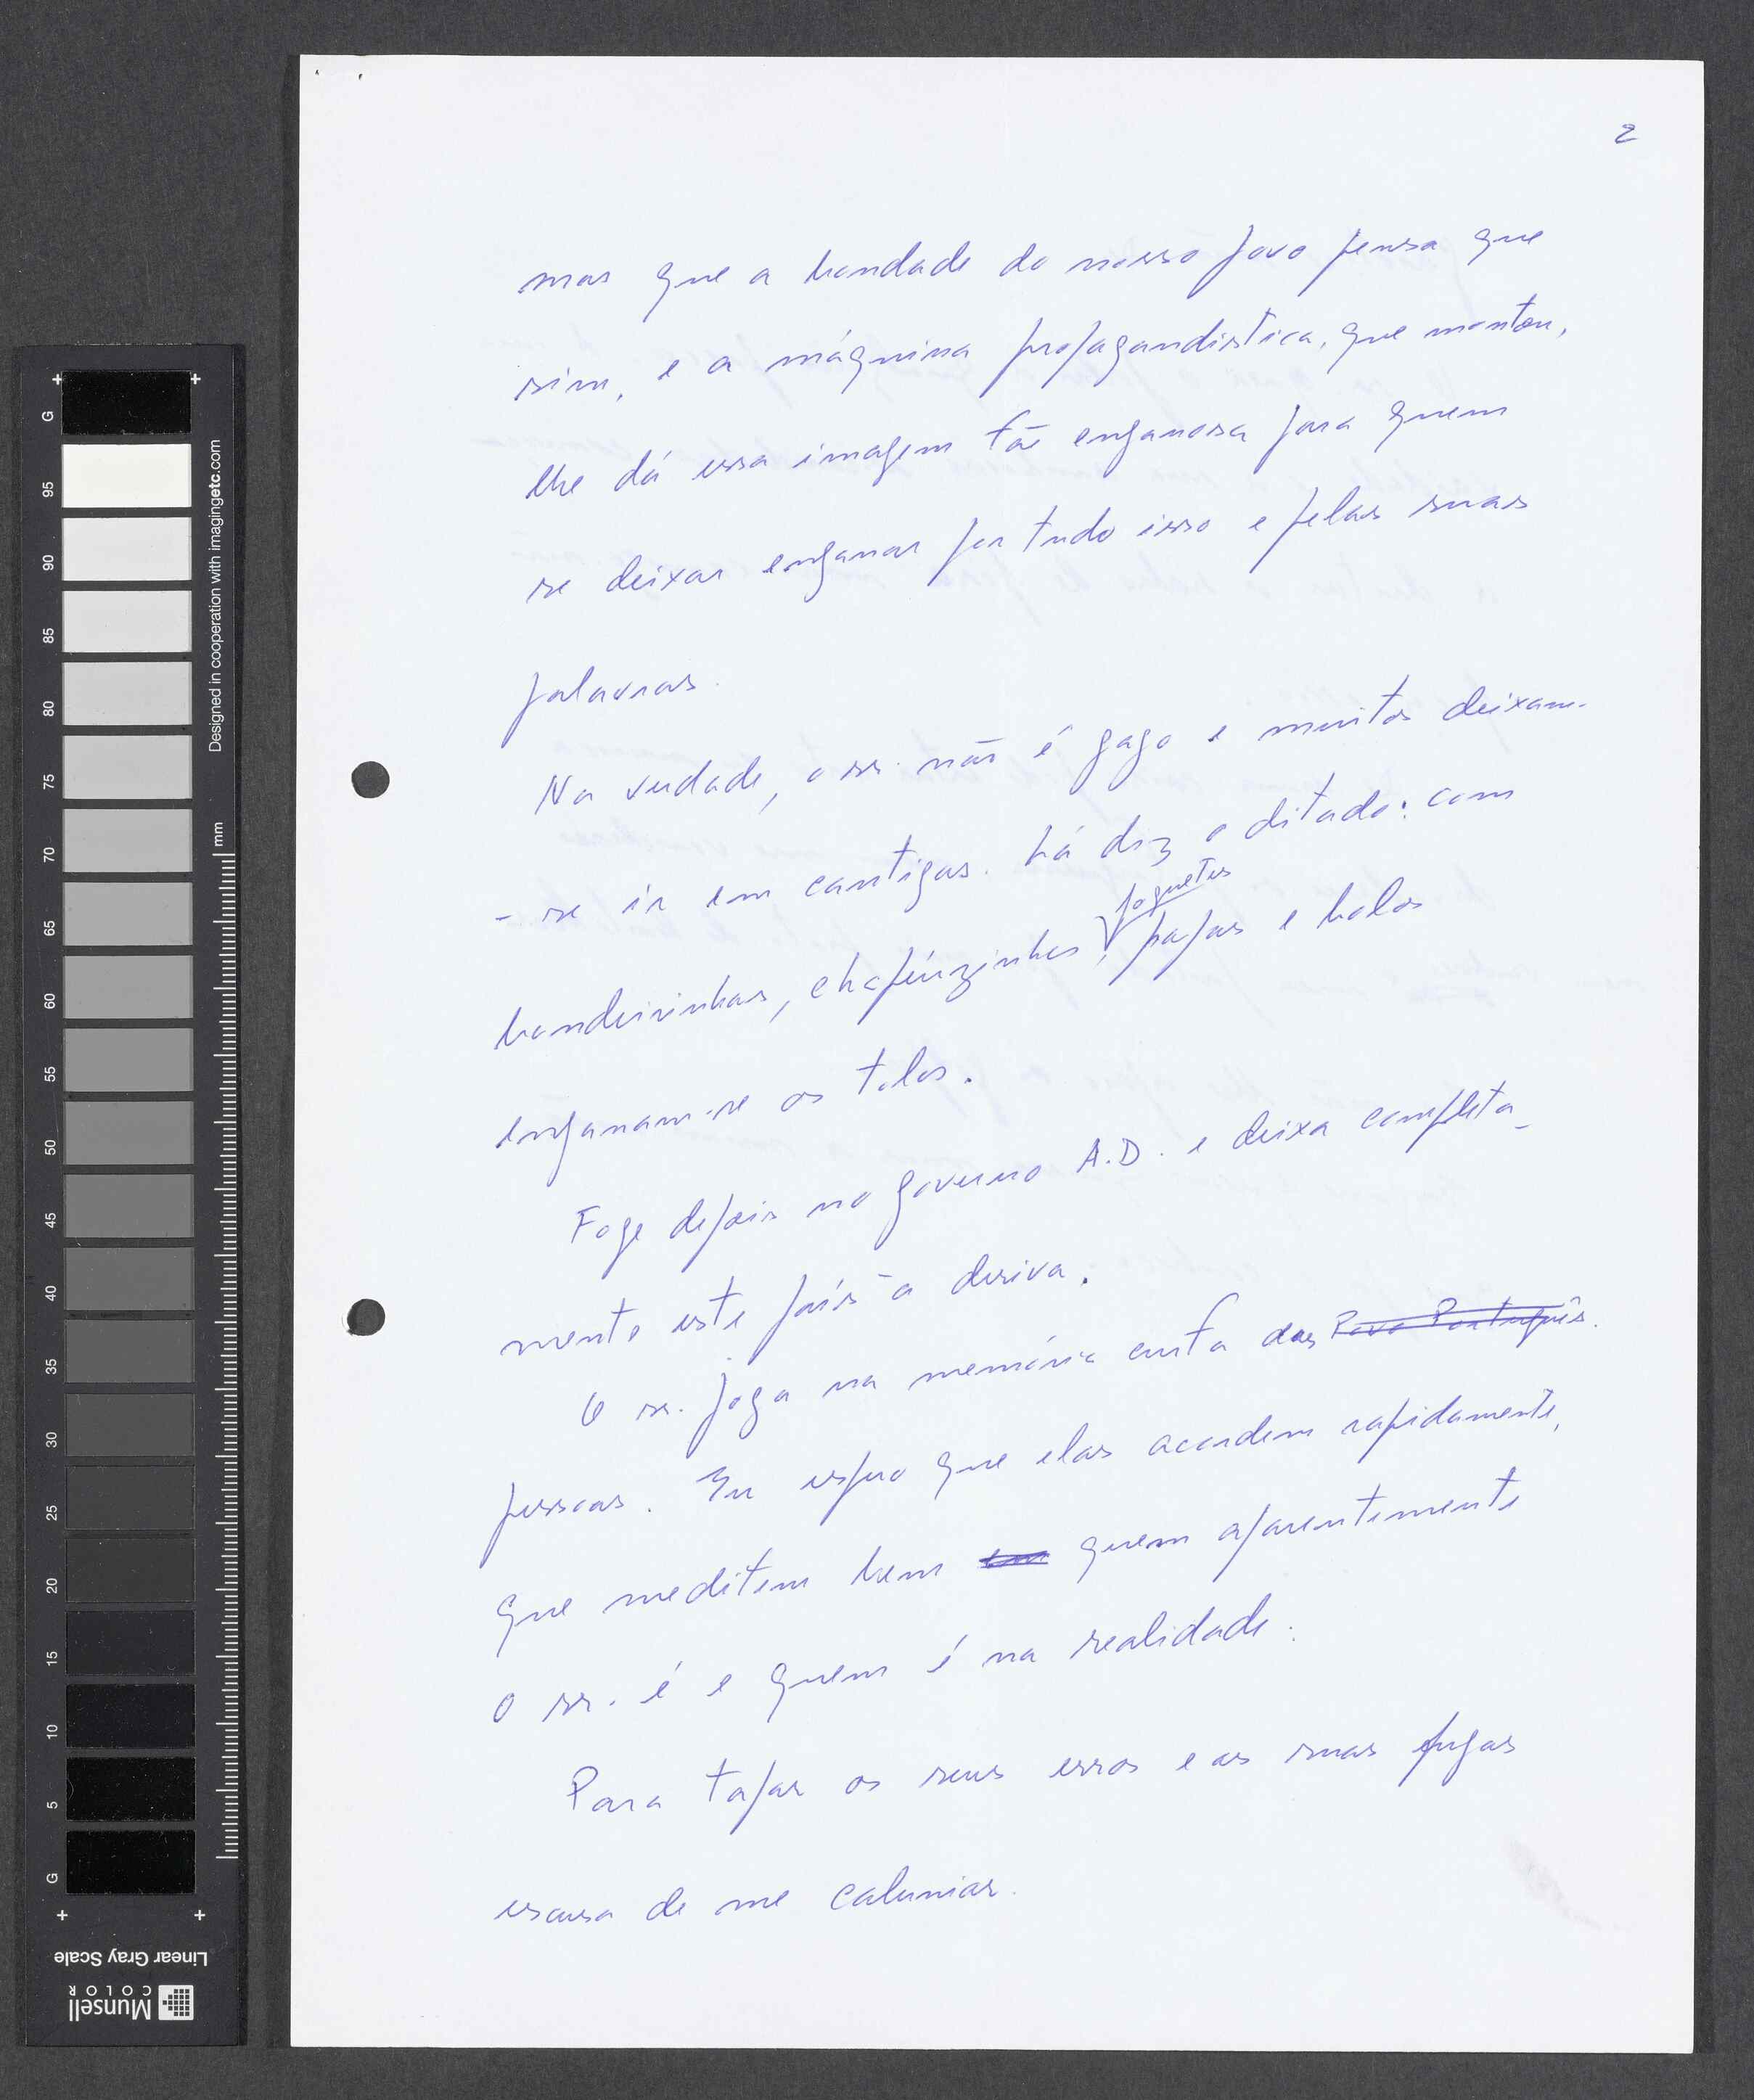 2
mas que a bondade do nosso povo pensa que
sim, e a máquina propagandistica, que montou,
lhe dá essa imagem tão enganosa para quem
se deixar enganar por tudo isso e pelas suas
palavras.
Na verdade, o sr. não é gago e muitos deixam-
- se ir em cantigas. Lá diz o ditado: com
foguetes
bandeirinhas, chapéuzinhos, papas e bolos
enganam-se os tolos.
Foge depois no governo A.D. e deixa completa-
mente este país à deriva.
O sr. joga na memória curta das Povo Português.
pessoas. Eu espero que elas acordem rapidamente,
que meditem bem em quem aparentemente
o sr. é e quem é na realidade.
Para tapar os seus erros e as suas fugas
escusa de me caluniar.
G
95
90
85
80
75
70
65
60
55
50
45
40
35
30
25
20
15
10
5
G
mm
Designed in cooperation with imagingetc.com
Linear Gray Scale
Munsell
COLOR